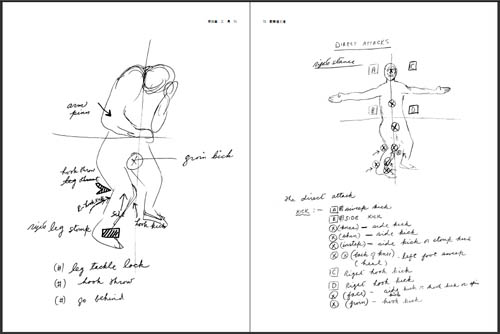 arm
pins
groin kick
hook throw
leg
side
hook kick
right leg stomp
(#) leg tackle lock
(#) hook throw
(#) go behind
DIRECT ATTACKS
right stance
A
C
B
D
The direct attack
KICK :-
A sweep kick
B SIDE KICK
(knee) - side kick
(shin) - side kick
(instep) - side kick or stomp
(back of knee) - left foot sweep
(heel)
C Right hook kick
D Right hook kick
(face) -
(groin) - hook kick